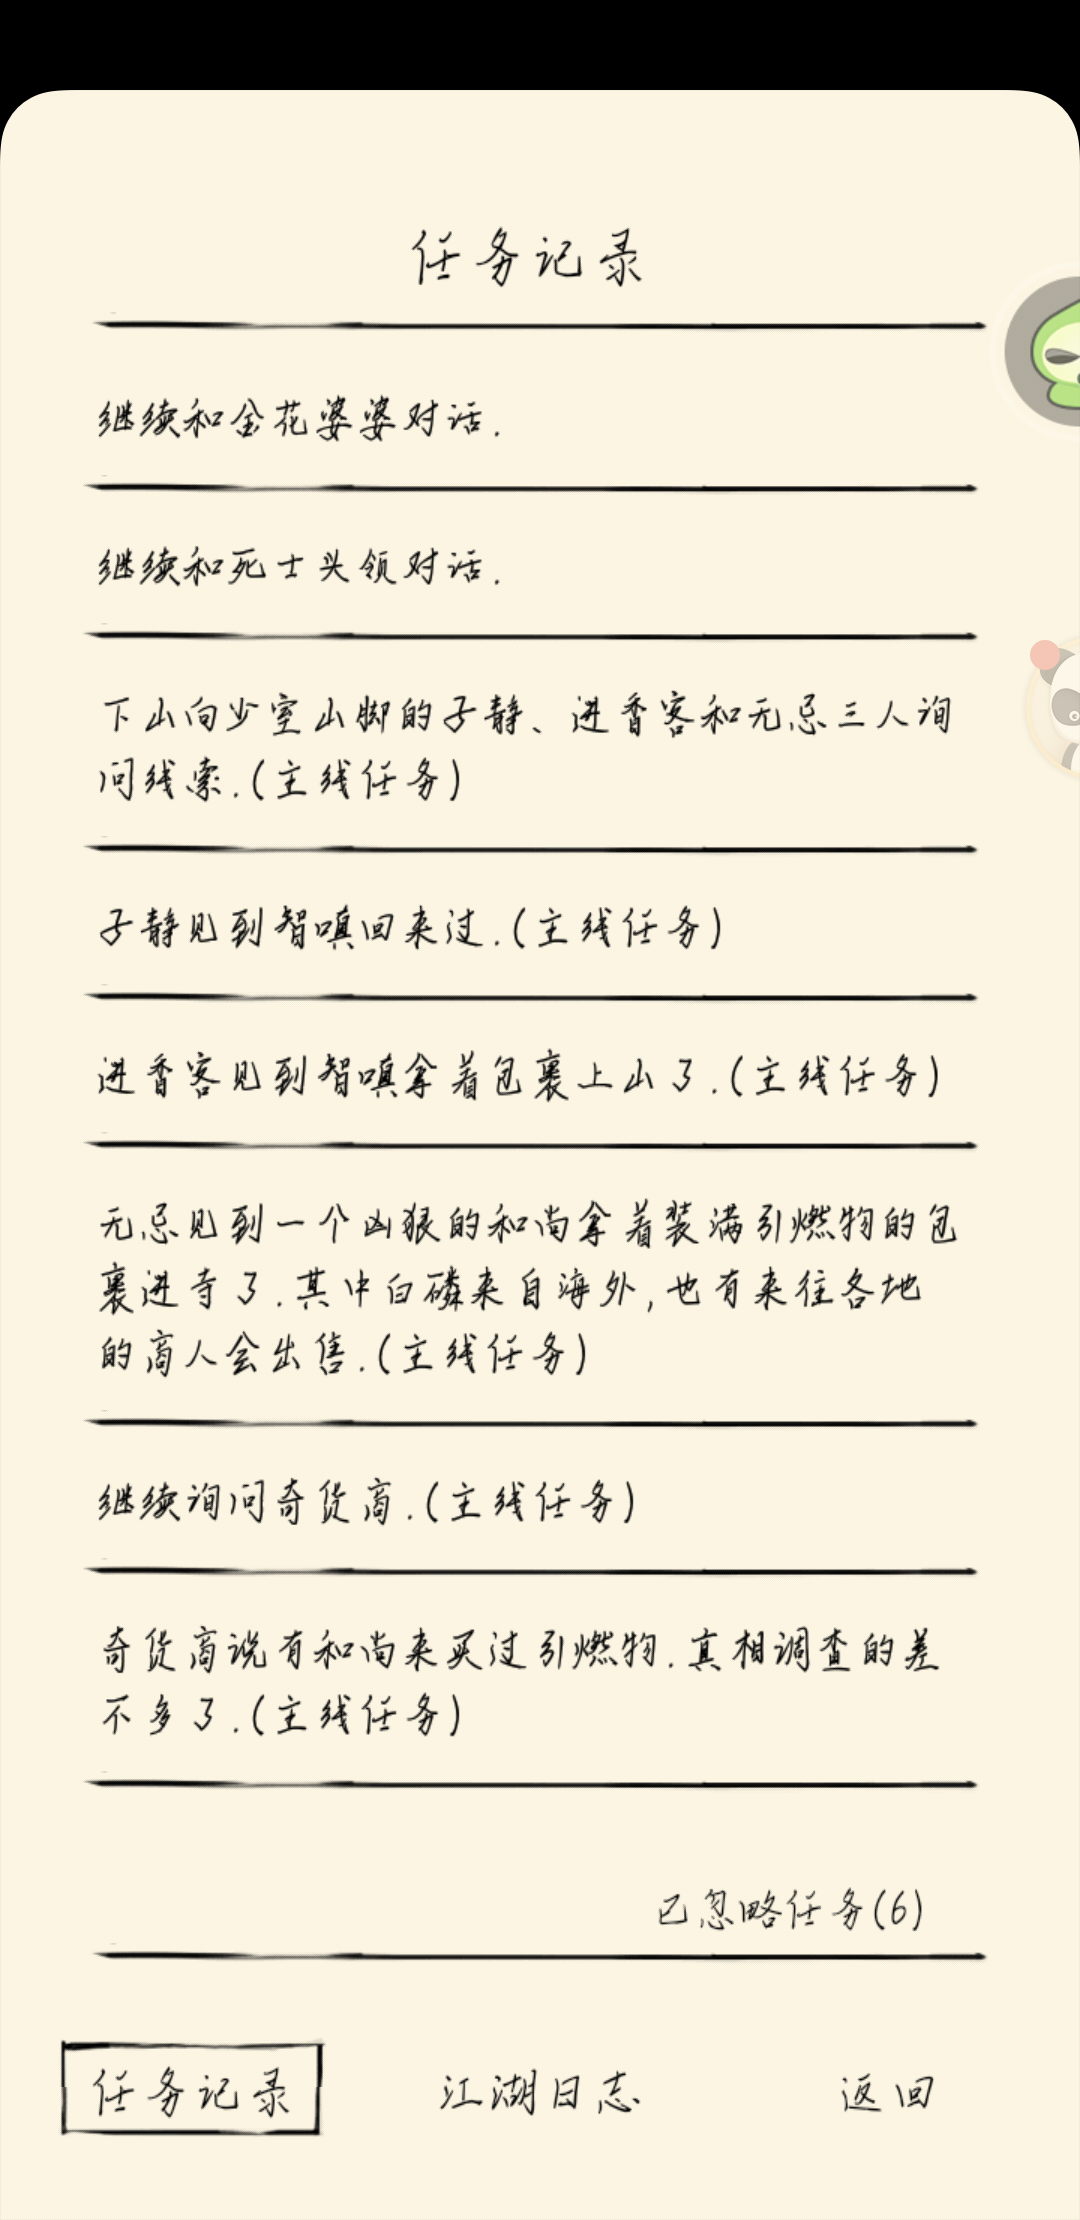 任务记录
继续和金花婆婆对话.
继续和死士头领对话.
下山向少室山脚的子静、进香客和无忌三人询
问线索.(主线任务)
子静见到智嗔回来过.(主线任务)
进香客见到智嗔拿着包裹上山了.(主线任务)
无忌见到一个凶狠的和尚拿着装满引燃物的包
裹进寺了.其中白磷来自海外,也有来往各地
的商人会出售.(主线任务)
继续询问奇货商.(主线任务)
奇货商说有和尚来买过引燃物.真相调查的差
不多了.(主线任务)
已忽略任务(6)
任务记录
江湖日志
返回